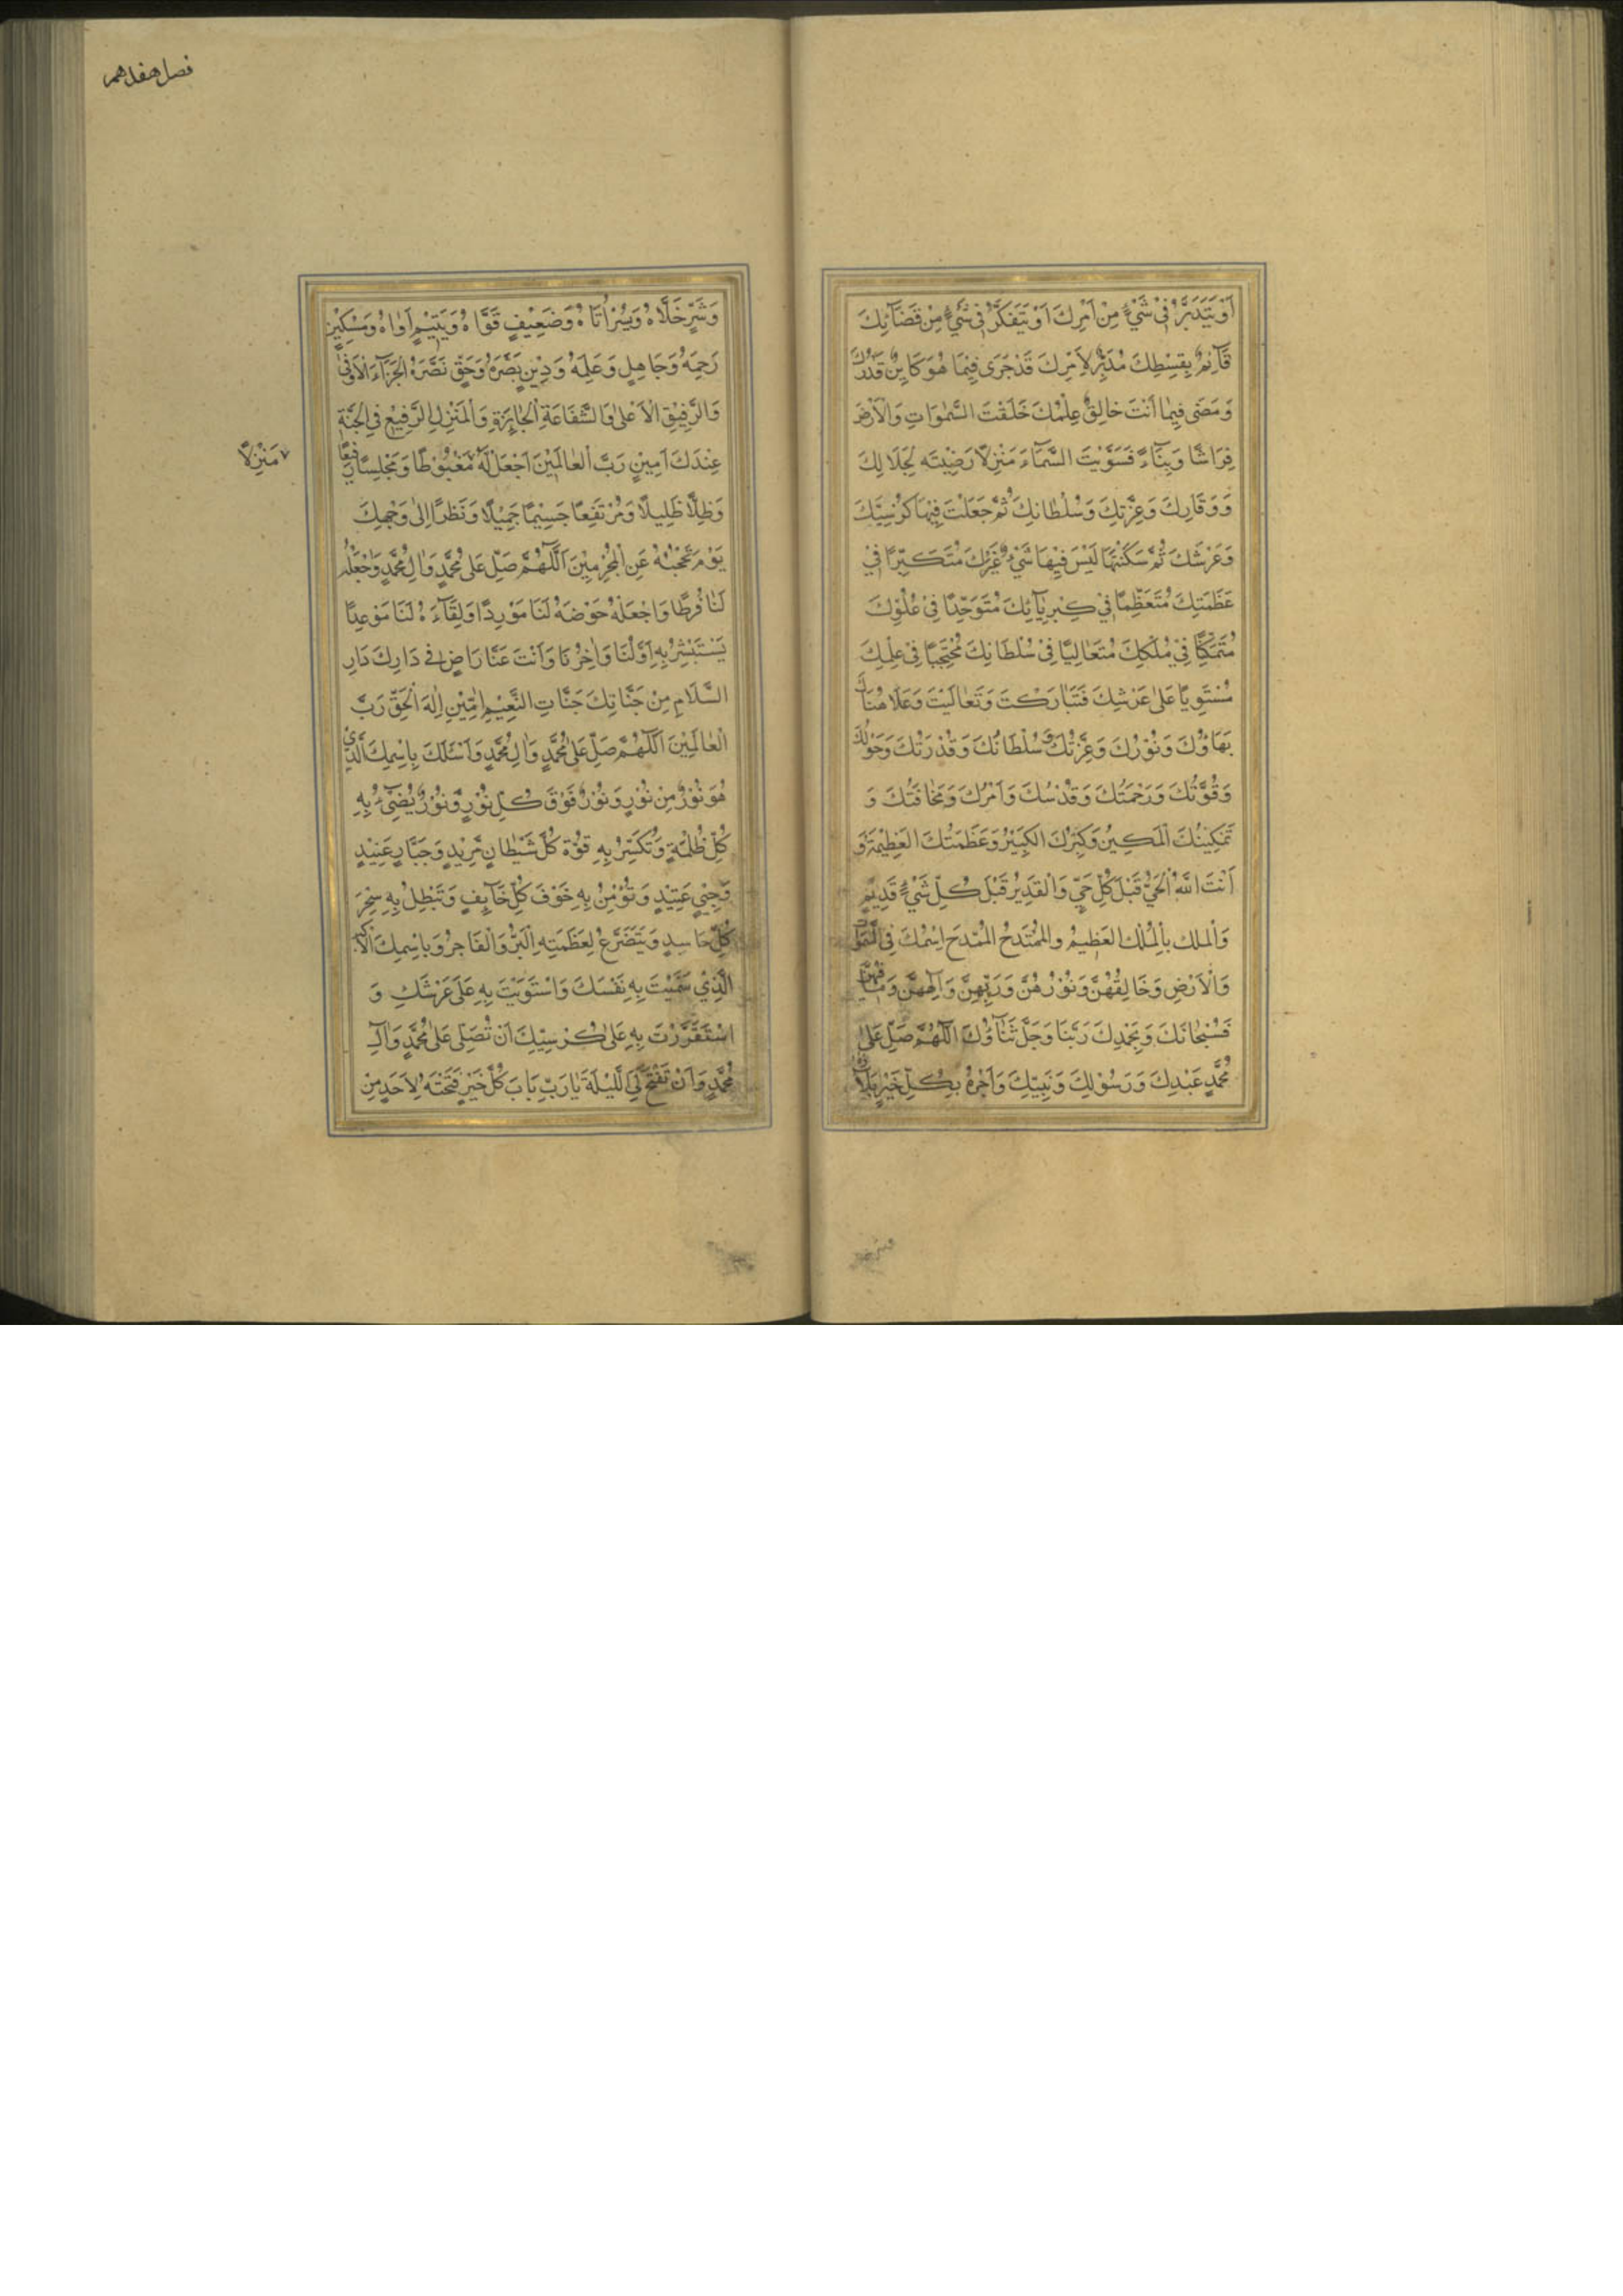 اَوْ يَتَدَبَّرُ فِیْ شَیْءٍ مِنْ اَمْرِكَ اَوْ يَتَفَكَّرُ فِیْ شَیْءٍ مِنْ قَضَآئِكَ
قَآئِمٌ بِقِسْطِكَ مُدَبِّرٌ لِاَمْرِكَ قَدْ جَرٰى فِيْمَا هُوَ كَايِنٌ قَدَرُكَ
وَ مَضٰى فِيمٰا اَنْتَ خالِقٌ عِلْمُكَ خَلَقْتَ السَّمٰوَاتِ وَالْاَرْضَ
فِرَاشًا وَ بِنَآءً فَسَوَّيْتَ السَّمَآءَ مَنْزِلًا رَضِيْتَه لِجَلَالِكَ
وَ وَقَارِكَ وَ عِزَّتِكَ وَ سُلْطانِكَ ثُمَّ جَعَلْتَ فِيْهَا كُرْسِيَّكَ
وَ عَرْشَكَ ثُمَّ سَكَنْتَهَا لَيْسَ فِيْهَا شَیْءٌ غَيْرُكَ مُتَكَبِّرًا فِیْ
عَظَمَتِكَ مُتَعَظِّمًا فِیْ كِبْرِيآئِكَ مُتَوَحِّدًا فِیْ عُلُوِّكَ
مُتَمَكِّنًا فِیْ مُلْكِكَ مُتَعَالِيًا فِیْ سُلْطَانِكَ مُحْتَجِبًا فِیْ عِلْمِكَ
مُسْتَوِيًا عَلٰى عَرْشِكَ فَتَبَارَكْتَ وَ تَعَالَيْتَ وَ عَلَا هُنَاكَ
بَهَاؤُكَ وَ نُوْرُكَ وَ عِزَّتُكَ وَ سُلْطَانُكَ وَ قُدْرَتُكَ وَ حَوْلُكَ
وَ قُوَّتُكَ وَ رَحْمَتُكَ وَ قُدْسُكَ وَ اَمْرُكَ وَ مَخافَتُكَ وَ
تَمْكِيْنُكَ الْمَكِيْنُ وَ كِبْرُكَ الْكَبِيْرُ وَ عَظَمَتُكَ الْعَظِيْمَةُ وَ
اَنْتَ اللّٰهُ الْحَیُّ قَبْلَ كُلِّ حَیٍّ وَالْقَدِيْرُ قَبْلَ كُلِّ شَیْءٍ قَدِيْمٍ
وَالْمَلِك بِالْمُلْكِ الْعَظِيْمُ وَالْمُمْتَدِحُ الْمُمْتَدِح اِسْمُكَ فِی السَّمٰوَاتِ
وَالْاَرْضِ وَ خَالِقُهُنَّ وَ نُوْرُهُنَّ وَ رَبّهُنَّ وَ اِلٰهُهُنَّ وَ مَا فِيْهِنَّ
فَسُبْحَانَكَ وَ بِحَمْدِكَ رَبَّنَا وَ جَلَّ ثَنَآؤُكَ اَللّٰهُمَّ صَلِّ عَلٰى
مُحَمَّدٍ عَبْدِكَ وَ رَسُوْلِكَ وَ نَبِيِّكَ وَ اَجْزِهُ بِكُلِّ خَيْرٍ اَبْلَاهُ
فصل هفدهم
وَ شَرٍّ خَلَّاهُ وَ يُسْرٍ اَتَاهُ وَ ضَعِيْفٍ قَوَّاهُ وَ يَتِيْمٍ اٰوٰاهُ وَ مِسْكِيْنٍ
رَحِمَهُ وَ جَاهِلٍ وَ عَلِمَه وَ دِيْنٍ بَصَّرَهُ وَ حَقٍّ نَصَّرَهُ الْجَزَآءَ الْاَوْفٰى
وَالرَّفِيْقِ الْاَعْلٰى وَالشَّفَاعَةِ الْجَايِزَةِ وَالْمَنْزِلِ الرَّفِيْعِ فِی الْجَنَّةِ
عِنْدَكَ اٰمِيْنَ رَبَّ الْعالَمِيْنَ اجْعَلْ لَهُ مَغْبُوْطًا وَ مَجْلِسًا رَفِيْعًا
مَنْزِلًا
وَ ظِلًّا ظَلِيلًا وَ مُرْتَفِعًا جَسِيْمًا جَمِيْلًا وَ نَظَرًا اِلٰى وَجْهِكَ
يَوْمَ تَحْجُبُهُ عَنِ الْمُجْرِمِيْنَ اَللّٰهُمَّ صَلِّ عَلٰى مُحَمَّدٍ وَاٰلِ مُحَمَّدٍ وَاجْعَلْهُ
لَنَا فُرَطًا وَاجْعَلْهُ حَوْضَهُ لَنَا مَوْرِدًا وَ لِقَآءَهُ لَنَا مَوْعِدًا
يَسْتَبْشِرُ بِهِ اَوَّلُنَا وَ اٰخِرُنَا وَ اَنْتَ عَنَّا رَاضٍ فِی دَارِكَ دَارِ
السَّلَامِ مِنْ جَنَّاتِكَ جَنَّاتِ النَّعِيْمِ اٰمِّيْنَ اِلٰهَ الْحَقِّ رَبَّ
الْعٰالَمِيْنَ اَللّٰهُمَّ صَلِّ عَلٰى مُحَمَّدٍ وَاٰلِ مُحَمَّدٍ وَ اَسْئَلُكَ بِاِسْمِكَ الَّذِیْ
هُوَ نُوْرٌ مِنْ نُوْرٍ وَ نُوْرٌ فَوْقَ كُلِّ نُوْرٍ وَّ نُوْرٌ يُضِیْءُ بِهِ
كُلّ ظُلْمَةٍ وَ تُكَسِّرُ بِهِ قُوَّةَ كُلِّ شَيْطَانٍ مَرِيْدٍ وَ جَبَّارٍ عَنِيْدٍ
وَ جِنِّیٍ عَتِيْدٍ وَ تُؤْمِنُ بِهِ خَوْفَ كُلِّ خَآيِفٍ وَ تَبْطِلُ بِهِ سِحْرَ
كُلِّ حَاسِدٍ وَ يَتَضَرَّعُ لِعَظَمَتِهِ الْبَرُّ وَالْفَاجِرُ وَ بِاسْمِكَ الْاَكْبَرِ
الَّذِیْ سَمَّيْتَ بِهِ نَفْسَكَ وَ اسْتَوَيْتَ بِهِ عَلٰى عَرْشِكَ وَ
اسْتَقْرَرْتَ بِهِ عَلٰى كُرْسِيِّكَ اَنْ تُصَلِّیَ عَلٰى مُحَمَّدٍ وَاٰلِ
مُحَمَّدٍ وَ اَنْ تَفْتَحَ لِیَ اللَّيْلَةَ يَا رَبِّ بَابَ كُلِّ خَيْرٍ فَتَحْتَهُ لِاَحَدٍ مِنْ